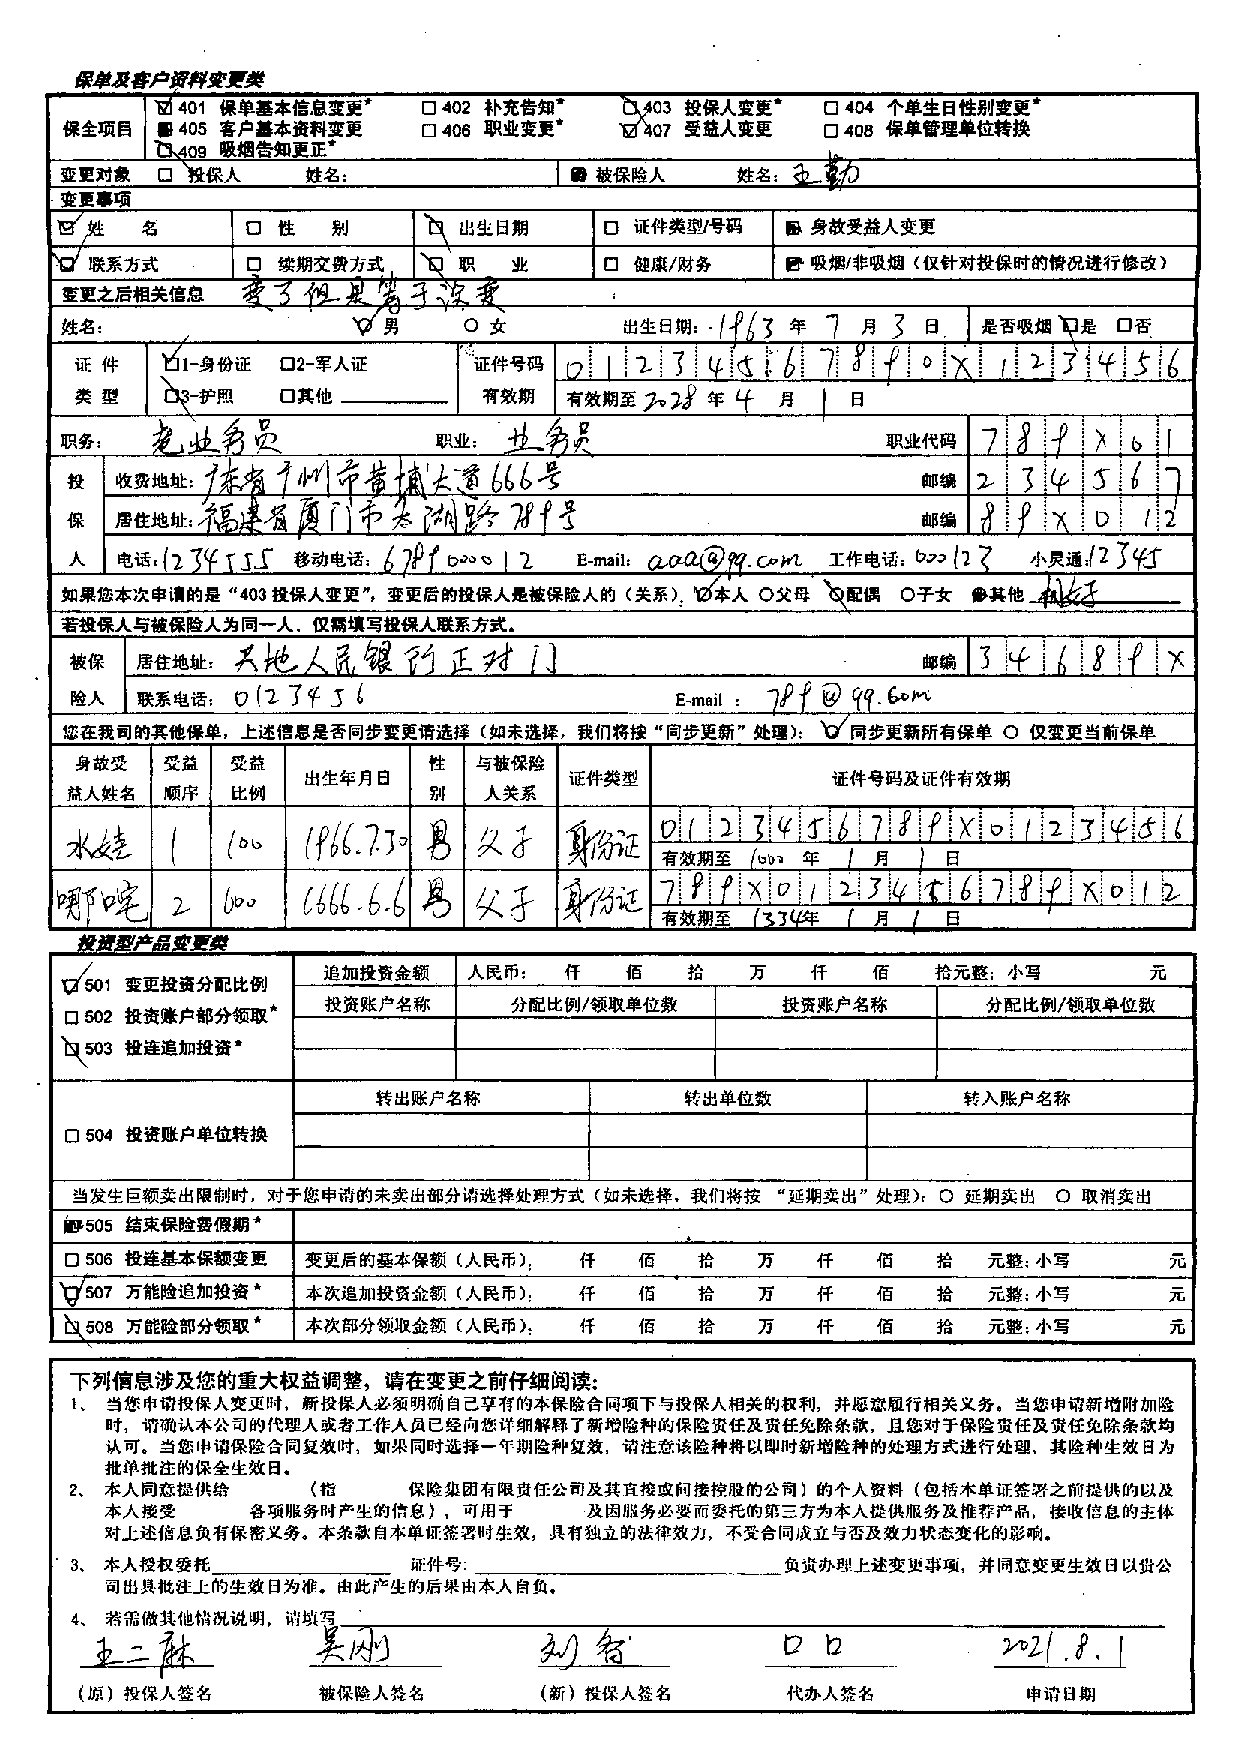 保单及客户资料变更类
保全项目 401 保单基本信息变更* 402 补充告知* 403 投保人变更* 404 个单生日性别变更*
405 客户基本资料变更 406 职业变更* 407 受益人变更 408 保单管理单位转换
409 吸烟告知更正*
变更对象 投保人 姓名: 被保险人 姓名: 王勤
变更事项
姓 名 性 别 出生日期 证件类型/号码 身故受益人变更
联系方式 续期交费方式 职 业 健康/财务 吸烟/非吸烟（仅针对投保时的情况进行修改）
变更之后相关信息 变了但是等于没变
姓名: 男 女 出生日期: 1963 年 7 月 3 日 是否吸烟 是 否
证 件 1-身份证 2-军人证 证件号码 01234567890X123456
类 型 3-护照 其他 有效期 有效期至 2028 年 4 月 1 日
职务: 老业务员 职业: 业务员 职业代码 789X01
投 收费地址: 广东省广州市黄埔大道666号 邮编 234567
保 居住地址: 福建省厦门市太湖路789号 邮编 89X012
人 电话: 1234555 移动电话: 6789000012 E-mail: aaa@qq.com 工作电话: 000123 小灵通: 12345
如果您本次申请的是“403 投保人变更”，变更后的投保人是被保险人的（关系）: 本人 父母 配偶 子女 其他
若投保人与被保险人为同一人，仅需填写投保人联系方式。
被保 居住地址: 天地人民银行正对门 邮编 34689X
险人 联系电话: 0123456 E-mail : 789@qq.com
您在我司的其他保单，上述信息是否同步变更请选择（如未选择，我们将按“同步更新”处理）: 同步更新所有保单 仅变更当前保单
身故受益人姓名 受益顺序 受益比例 出生年月日 性别 与被保险人关系 证件类型 证件号码及证件有效期
水娃 1 100 1966.7.30 男 父子 身份证 0123456789X0123456
有效期至 1000 年 1 月 1 日
哪吒 2 600 6666.6.6 男 父子 身份证 789X0123456789X012
有效期至 1334年 1 月 1 日
投资型产品变更类
501 变更投资分配比例 追加投资金额 人民币: 仟 佰 拾 万 仟 佰 拾元整: 小写 元
502 投资账户部分领取* 投资账户名称 分配比例/领取单位数 投资账户名称 分配比例/领取单位数
503 投连追加投资*
转出账户名称 转出单位数 转入账户名称
504 投资账户单位转换
当发生巨额卖出限制时，对于您申请的未卖出部分请选择处理方式（如未选择，我们将按 “延期卖出”处理）: 延期卖出 取消卖出
505 结束保险费假期*
506 投连基本保额变更 变更后的基本保额（人民币）: 仟 佰 拾 万 仟 佰 拾 元整: 小写 元
507 万能险追加投资* 本次追加投资金额（人民币）: 仟 佰 拾 万 仟 佰 拾 元整: 小写 元
508 万能险部分领取* 本次部分领取金额（人民币）: 仟 佰 拾 万 仟 佰 拾 元整: 小写 元
下列信息涉及您的重大权益调整，请在变更之前仔细阅读:
1、 当您申请投保人变更时，新投保人必须明确自己享有的本保险合同项下与投保人相关的权利，并愿意履行相关义务。当您申请新增附加险
时，请确认本公司的代理人或者工作人员已经向您详细解释了新增险种的保险责任及责任免除条款，且您对于保险责任及责任免除条款均
认可。当您申请保险合同复效时，如果同时选择一年期险种复效，请注意该险种将以即时新增险种的处理方式进行处理，其险种生效日为
批单批注的保全生效日。
2、 本人同意提供给 （指 保险集团有限责任公司及其直接或间接控股的公司）的个人资料（包括本单证签署之前提供的以及
本人接受 各项服务时产生的信息），可用于 及因服务必要而委托的第三方为本人提供服务及推荐产品，接收信息的主体
对上述信息负有保密义务。本条款自本单证签署时生效，具有独立的法律效力，不受合同成立与否及效力状态变化的影响。
3、 本人授权委托 证件号: 负责办理上述变更事项，并同意变更生效日以贵公
司出具批注上的生效日为准。由此产生的后果由本人自负。
4、 若需做其他情况说明，请填写
王二麻 吴刚 刘智 口口 2021.8.1
（原）投保人签名 被保险人签名 （新）投保人签名 代办人签名 申请日期